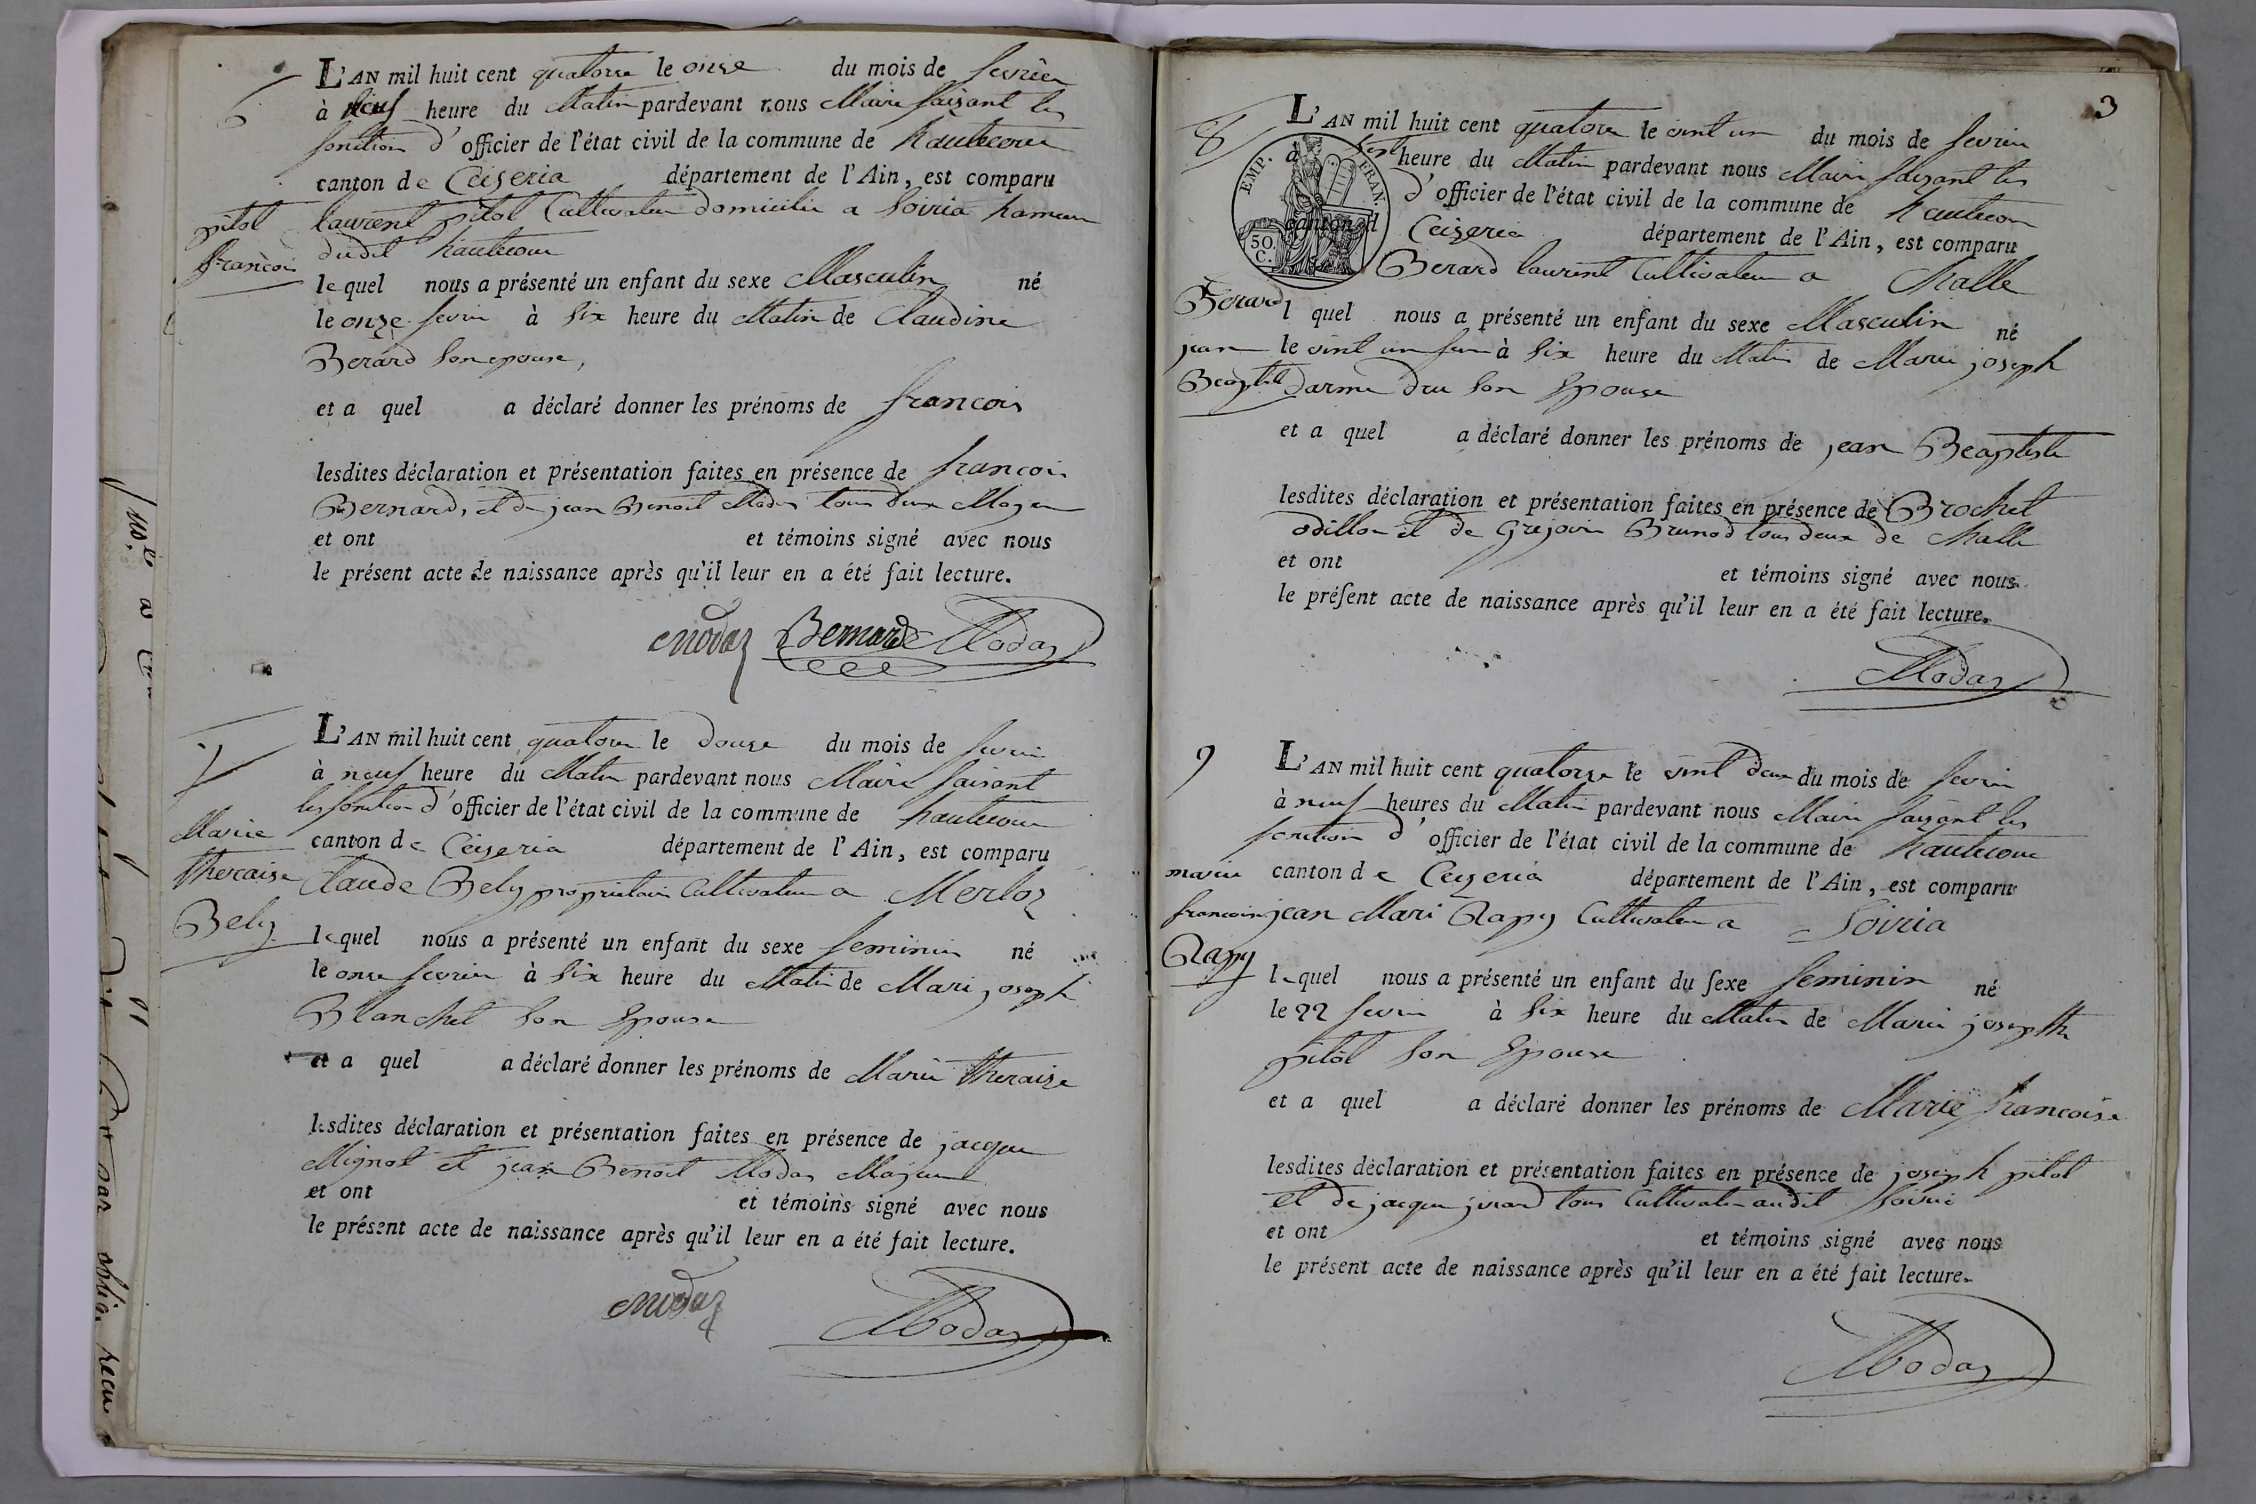 6
L'AN mil huit cent quatorze le onze du mois de fevrier
à neuf heure du Matin pardevant nous Maire faisant les
fonction d'officier de l'état civil de la commune de hautecour
canton de Ceizeria département de l'Ain, est comparu
pitol
françois
laurent pitol Cultivateur domicilie a Soiria hameau
dudit hautecour
lequel nous a présenté un enfant du sexe Masculin né
le onze fevrier à six heure du Matin de Claudine
Berard son epouse,
et a quel a déclaré donner les prénoms de francois
lesdites déclaration et présentation faites en présence de francois
Bernard, et de jean Benoit Modas tous deux Majeur
et ont et témoins signé avec nous
le présent acte de naissance après qu'il leur en a été fait lecture.
Modaz Bernard Modas
7
L'AN mil huit cent quatorze le douze du mois de fevrier
à neuf heure du Matin pardevant nous Maire faisant
les fonction d'officier de l'état civil de la commune de hautecour
Marie
theraise
Bely
canton de Ceizeria département de l'Ain, est comparu
Claude Bely proprietaire Cultivateur a Merloz
lequel nous a présenté un enfant du sexe feminin né
le onze fevrier à six heure du Matin de Mari joseph
Blanchet son Epouse
et a quel a déclaré donner les prénoms de Marie theraise
lesdites déclaration et présentation faites en présence de jacque
Mignot et jean Benoit Modas Majeur
et ont et témoins signé avec nous
le présent acte de naissance après qu'il leur en a été fait lecture.
Modaz Modas
3
8
L'AN mil huit cent quatorze le vint un du mois de fevrier
à sept heure du Matin pardevant nous Maire faisant les
d'officier de l'état civil de la commune de hautecour
canton d Ceizeria département de l'Ain, est comparu
EMP. FRAN.
50.
C.
Berard laurent Cultivateur a Challe
Berard
jean
Beaptiste
l quel nous a présenté un enfant du sexe Masculin né
le vint un fevrier à six heure du Matin de Marie joseph
darme dru son Epouse
et a quel a déclaré donner les prénoms de jean Beaptiste
lesdites déclaration et présentation faites en présence de Brochet
odillon et de Grejoire Brunod tous deux de Challe
et ont et témoins signé avec nous
le présent acte de naissance après qu'il leur en a été fait lecture.
Modas
9
L'AN mil huit cent quatorze le vint deux du mois de fevrier
à neuf heures du Matin pardevant nous Maire faisant les
fonction d'officier de l'état civil de la commune de hautecour
marie
francoise
Rapy
canton de Ceizeria département de l'Ain, est comparu
jean Mari Rapy Cultivateur a Soiria
lequel nous a présenté un enfant du sexe feminin né
le 22 fevrier à six heure du Matin de Marie josephte
pitol son Epouse
et a quel a déclaré donner les prénoms de Marie francoise
lesdites déclaration et présentation faites en présence de joseph pitol
et de jacque jirard tous Cultivateur audit Soiria
et ont et témoins signé avec nous
le présent acte de naissance après qu'il leur en a été fait lecture.
Modas